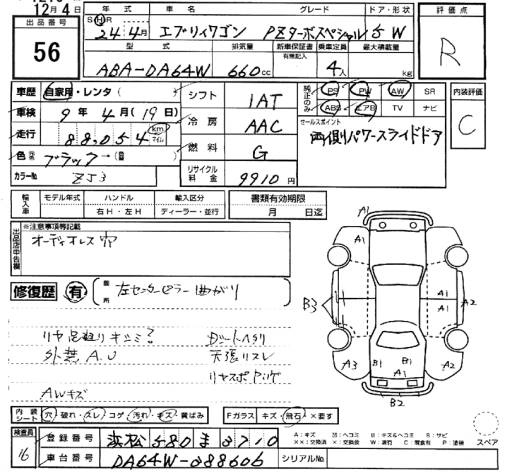 12月4日
出品番号
56
年式 車名 グレード ドア・形状
SⒽ24年4月 エブリィワゴン PZターボスペシャル 5W
型式 排気量 新車保証書 乗車定員 最大積載量
有無記入
ABA-DA64W 660cc 4人 kg
評価点
R
車歴 自家用・レンタ( )
車検 9年4月(19日)
走行 88054 km マイル
色 ブラック→( )
カラーNo. ZJ3
シフト 1AT
冷房 AAC
燃料 G
リサイクル料金 9910円
純正のみ PS PW AW SR
ABS エアB TV ナビ
セールスポイント
両側パワースライドドア
内装評価
C
輸入車 モデル年式 ハンドル 輸入区分
右H・左H ディーラー・並行
書類有効期限
月 日迄
出品店申告欄
※注意事項等記載
オーディオレス 穴
修復歴 有 箇所 左センターピラー曲がり
外装 A.U
AWキズ
天張リスレ
A1
A1
A1
A1
A2
A2
B3
A3
B1
A1
B1
A2
B2
内装 シート 穴 破れ・スレ コゲ 汚れ・キズ 黄ばみ
Fガラス キズ・飛石 ×要す
A：キズ U：ヘコミ B：キズ&ヘコミ S：サビ
スペア
検査員
16
登録番号 浜松580ま3710
車台番号 DA64W-288606
シリアルNo.